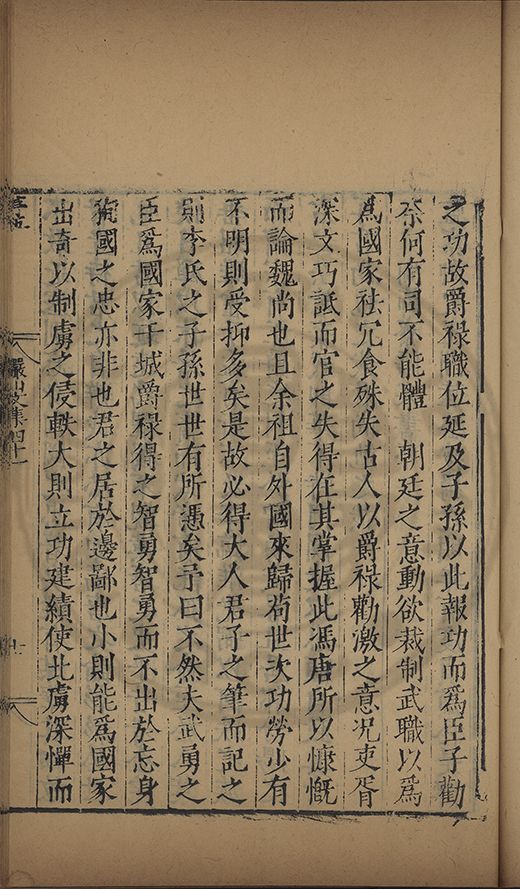 之功故爵祿職位延及子孫以此報功而爲臣子勸
奈何有司不能體　朝廷之意動欲裁制武職以爲
爲國家祛冗食殊失古人以爵祿勸激之意况吏胥
深文巧詆而官之失得在其掌握此馮唐所以慷慨
而論魏尚也且余祖自外國來歸茍世次功勞少有
不明則受抑多矣是故必得大人君子之筆而記之
則李氏之子孫世世有所憑矣予曰不然夫武勇之
臣爲國家干城爵祿得之智勇智勇而不出於忘身
狥國之忠亦非也君之居於邊鄙也小則能爲國家
出奇以制虜之侵軼大則立功建績使北虜深憚而
儼山文集四十一